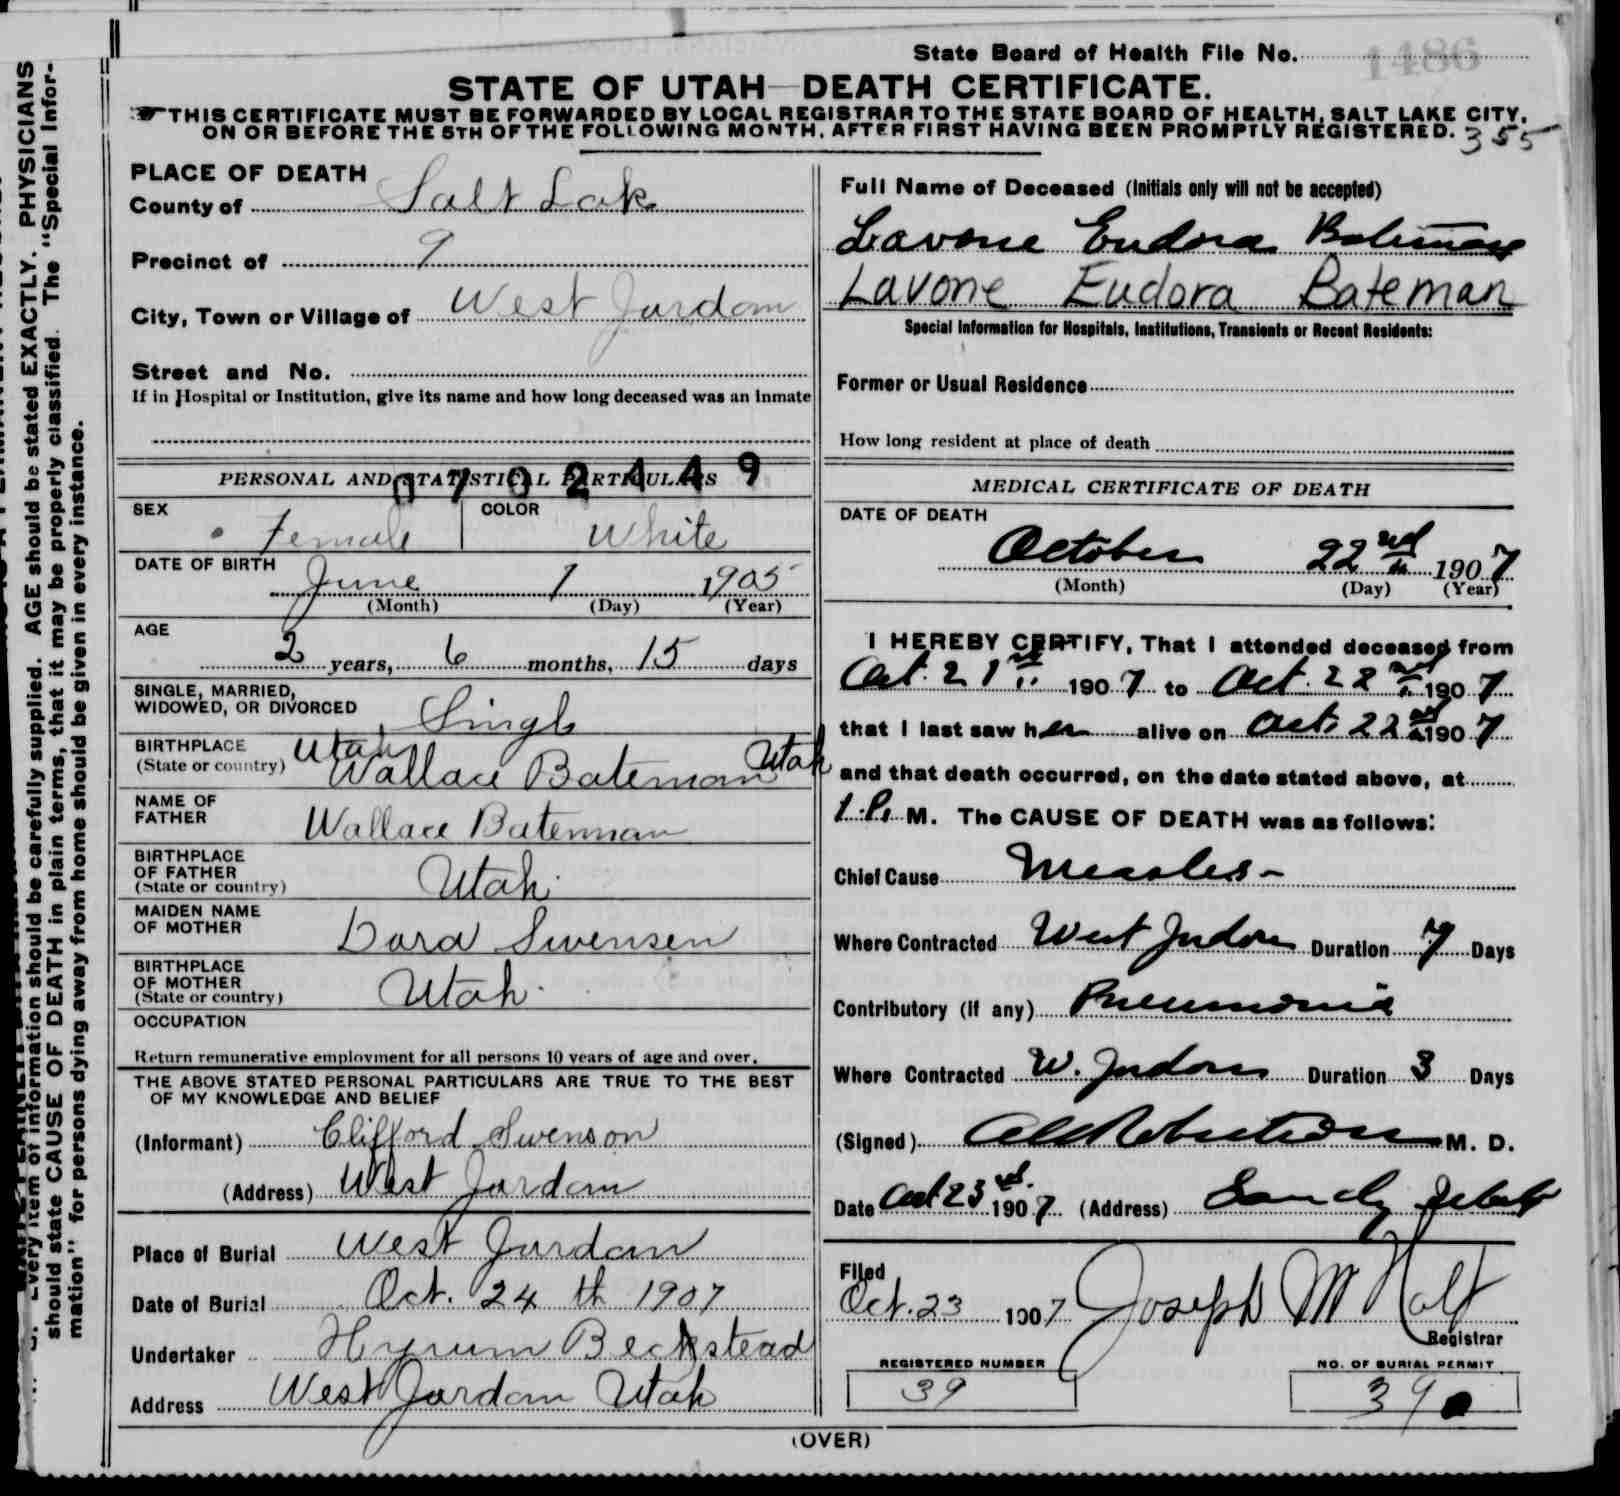 State Board of Health File No. 1486
STATE OF UTAH—DEATH CERTIFICATE.
THIS CERTIFICATE MUST BE FORWARDED BY LOCAL REGISTRAR TO THE STATE BOARD OF HEALTH, SALT LAKE CITY,
ON OR BEFORE THE 5TH OF THE FOLLOWING MONTH, AFTER FIRST HAVING BEEN PROMPTLY REGISTERED. 355
Every item of information should be carefully supplied. AGE should be stated EXACTLY. PHYSICIANS
should state CAUSE OF DEATH in plain terms, that it may be properly classified. The "Special Infor-
mation" for persons dying away from home should be given in every instance.
PLACE OF DEATH
County of Salt Lake
Precinct of 9
City, Town or Village of West Jordan
Street and No.
If in Hospital or Institution, give its name and how long deceased was an inmate
PERSONAL AND STATISTICAL PARTICULARS
0702449
SEX Female COLOR White
DATE OF BIRTH June 7 1905
(Month) (Day) (Year)
AGE
2 years, 6 months, 15 days
SINGLE, MARRIED,
WIDOWED, OR DIVORCED Single
BIRTHPLACE Utah Utah
(State or country) Wallace Bateman
NAME OF
FATHER Wallace Bateman
BIRTHPLACE
OF FATHER Utah
(State or country)
MAIDEN NAME
OF MOTHER Dora Swensen
BIRTHPLACE
OF MOTHER Utah
(State or country)
OCCUPATION
Return remunerative employment for all persons 10 years of age and over.
THE ABOVE STATED PERSONAL PARTICULARS ARE TRUE TO THE BEST
OF MY KNOWLEDGE AND BELIEF
(Informant) Clifford Swenson
(Address) West Jordan
Place of Burial West Jordan
Date of Burial Oct. 24th 1907
Undertaker Hyrum Beckstead
Address West Jordan Utah
Full Name of Deceased (Initials only will not be accepted)
Lavone Eudora Bateman
Lavone Eudora Bateman
Special Information for Hospitals, Institutions, Transients or Recent Residents:
Former or Usual Residence
How long resident at place of death
MEDICAL CERTIFICATE OF DEATH
DATE OF DEATH
October 22nd 1907
(Month) (Day) (Year)
I HEREBY CERTIFY, That I attended deceased from
Oct. 21st 1907 to Oct. 22nd 1907
that I last saw her alive on Oct. 22nd 1907
and that death occurred, on the date stated above, at
1 P. M. The CAUSE OF DEATH was as follows:
Chief Cause Measles-
Where Contracted West Jordan Duration 7 Days
Contributory (if any) Pneumonia
Where Contracted W. Jordan Duration 3 Days
(Signed) Robertson M. D.
Date Oct 23rd 1907 (Address) Sandy Utah
Filed
Oct. 23 1907 Joseph M Holt
Registrar
REGISTERED NUMBER NO. OF BURIAL PERMIT
39 39
(OVER)